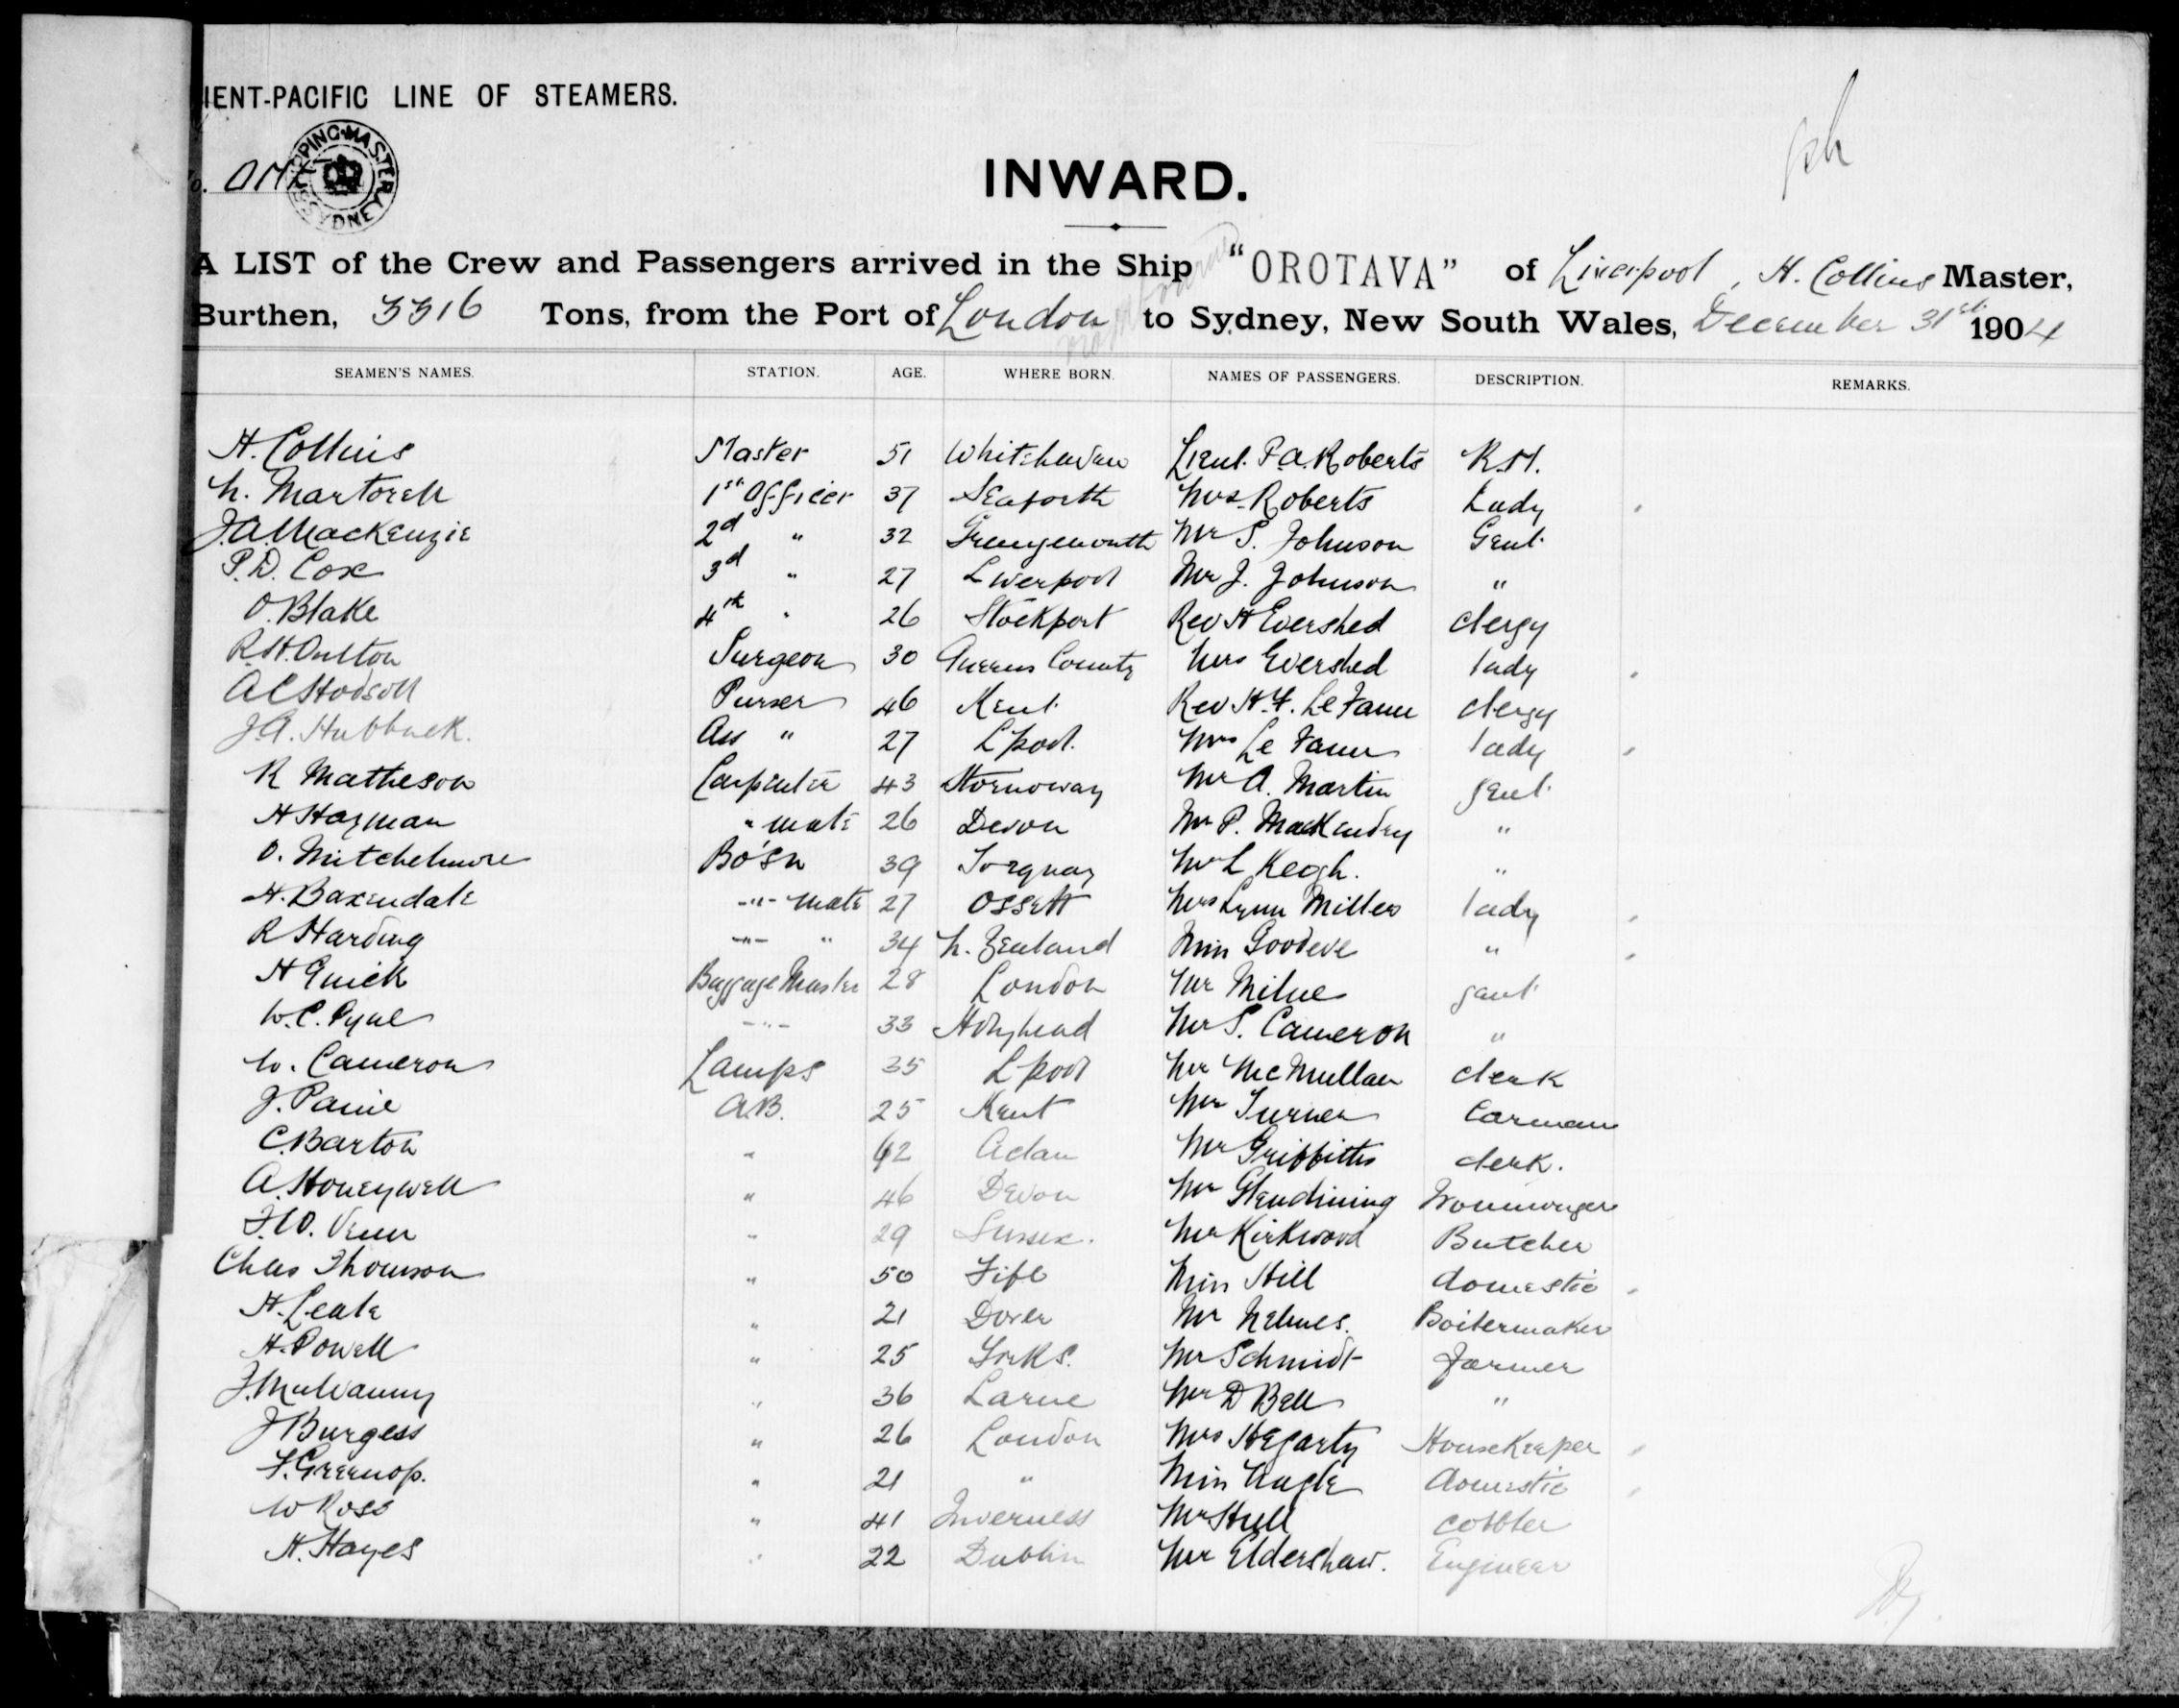 IENT-PACIFIC LINE OF STEAMERS.
SHIPPING MASTER SYDNEY
INWARD.
A LIST of the Crew and Passengers arrived in the Ship "OROTAVA" of Liverpool, H. Collins Master,
Burthen, 3316 Tons, from the Port of London to Sydney, New South Wales, December 31st 1904
SEAMEN'S NAMES. STATION. AGE. WHERE BORN. NAMES OF PASSENGERS. DESCRIPTION. REMARKS.
H. Collins Master 51 Whitehaven Lieut. P.A. Roberts R.M.
N. Martorell 1st Officer 37 Seaforth Mrs Roberts Lady
J.A. MacKenzie 2d " 32 Grangemouth Mr S. Johnson Gent.
P.D. Cox 3d " 27 Liverpool Mr J. Johnson "
O. Blake 4th " 26 Stockport Rev H Evershed clergy
R.H. Oulton Surgeon 30 Queens County Mrs Evershed lady
A C Hodson Purser 46 Kent. Rev H.F. Le Fanu clergy
J.A. Hubback. Ass " 27 Lpool. Mrs Le Fanu lady
R Matheson Carpenter 43 Stornoway Mr A. Martin gent.
H Hagman " mate 26 Devon Mr P. MacKendry "
O. Mitchelmore Bo'sn 39 Torquay Mr L Keogh. "
H. Baxendale -"- mate 27 Ossett Mrs Lynn Miller lady
R Harding -"- " 34 N. Zealand Miss Goodeve "
H Quick Baggage Master 28 London Mr Milne gent.
W.C. Pyne -"- 33 Holyhead Mr S. Cameron "
W. Cameron Lamps 35 Lpool Mr McMullan clerk
J. Paine A.B. 25 Kent Mr Turner Carman
C. Barton " 42 Mr Griffiths clerk.
A. Honeywell " 46 Devon Mr Glendining Ironmonger
F.W. Venn " 29 Sussex. Mr Kirkwood Butcher
Chas Thomson " 50 Fife Miss Hill domestic
H. Leale " 21 Dover Mr Nelmes. Boilermaker
H. Powell " 25 Yorks. Mr Schmidt farmer
J. " 36 Larne Mr D Bell "
J Burgess " 26 London Mrs Hegarty HouseKeeper
F. Greenop. " 21 " Miss Nagle domestic
W Ross " 41 Inverness Mr Hull cobbler
H. Hayes " 22 Dublin Mr Eldershaw. Engineer